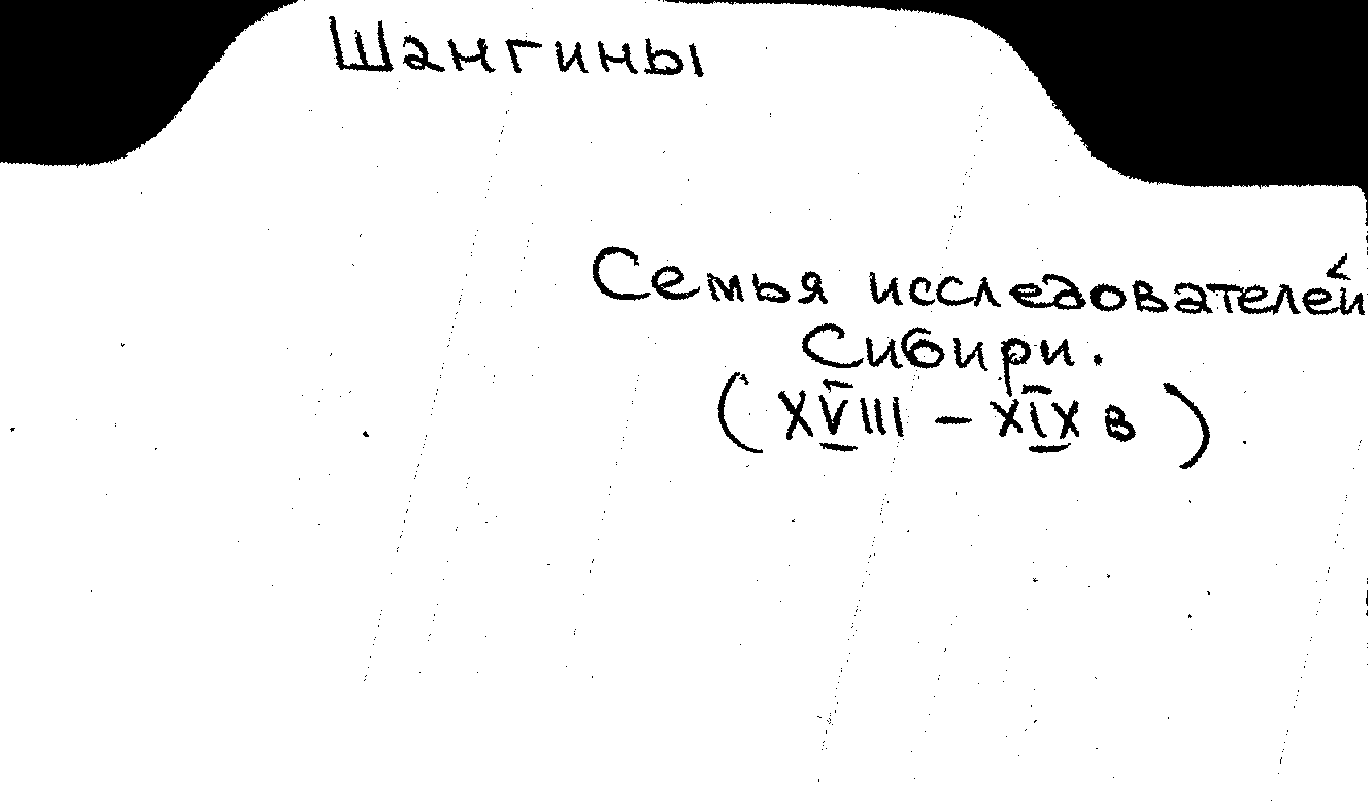 Шангины
Семья исследователей
Сибири.
(XVIII – XIX в)